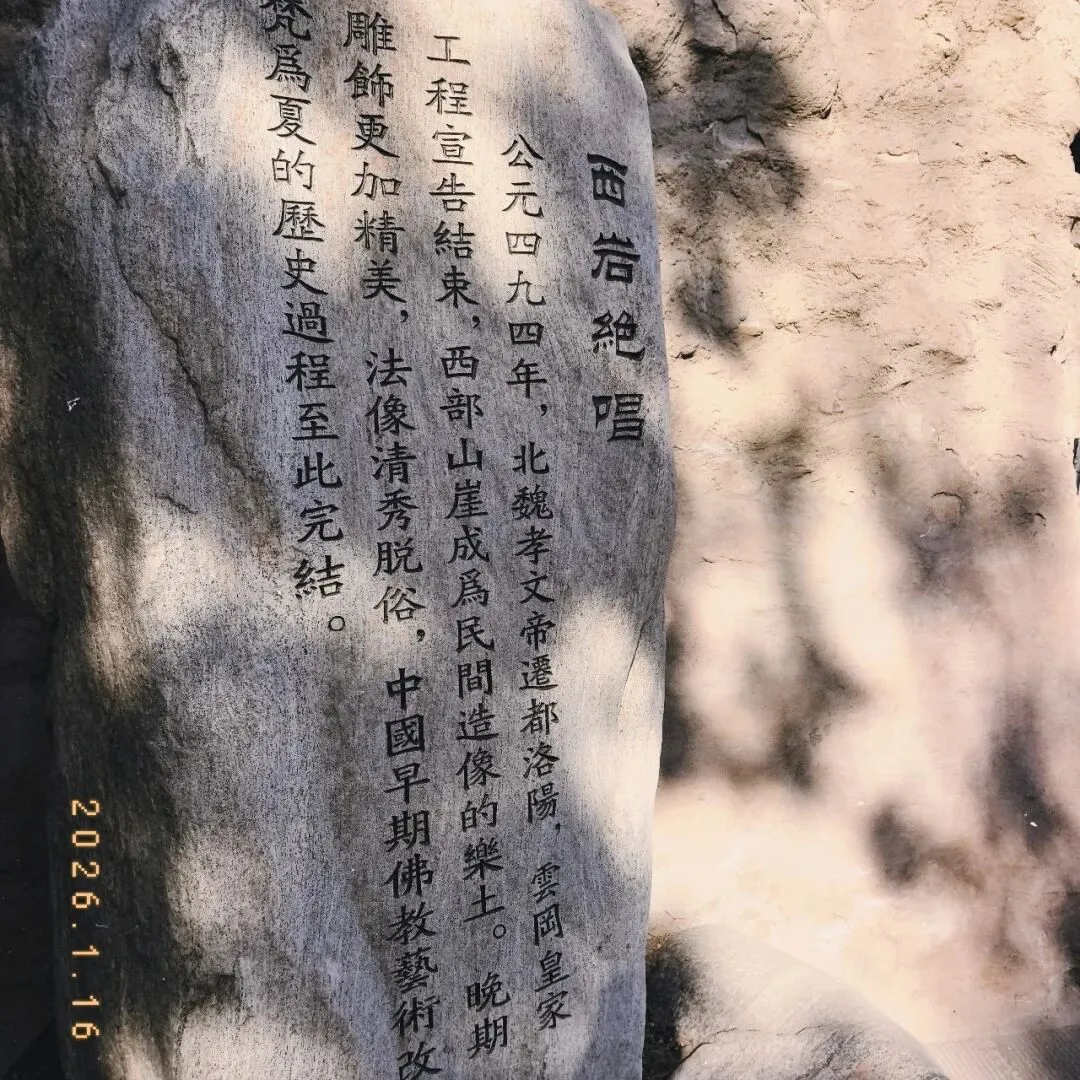 西岩絶唱
公元四九四年，北魏孝文帝遷都洛陽，雲岡皇家
工程宣告結束，西部山崖成爲民間造像的樂土。晚期
雕飾更加精美，法像清秀脱俗，中國早期佛教藝術改
梵爲夏的歷史過程至此完結。
2026.1.16